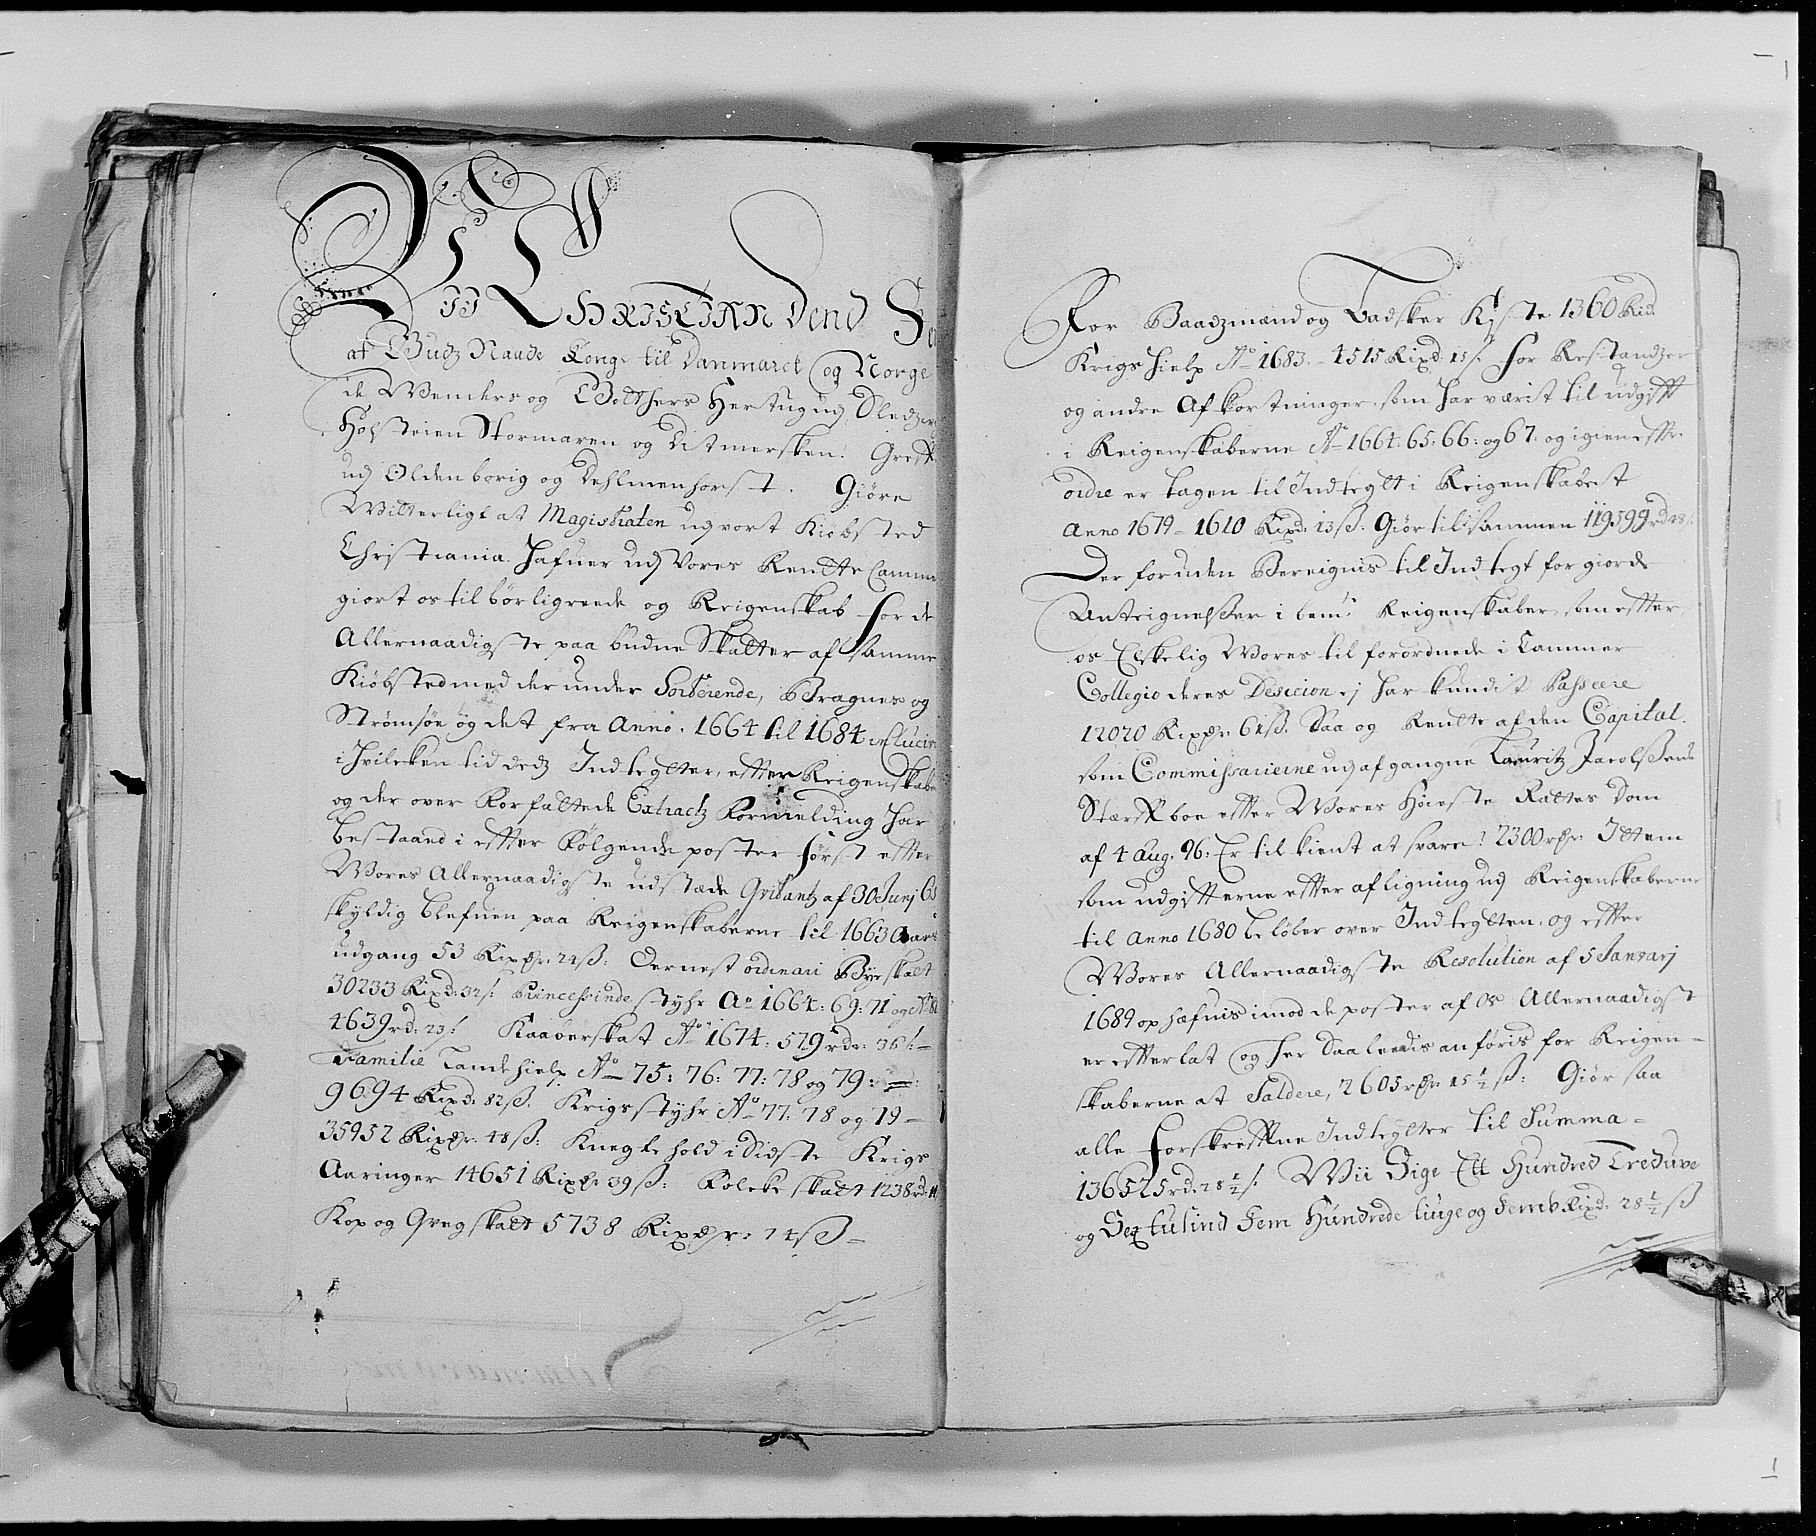 WII CHRISTIAN Dend Fem
af Gudz Naade Konge til Danmarck og Norge
de Wenders og Gotthers Hertug udj Sledzvi
Holsteien Stormaren og Ditmersken: Greffve
udj Oldenborig og Dehlmenhorst. Giøre
Witterligt at Magistraten udj vort Kiøbsted
Christiania Hafuer udj Vores Rendte Camme
giort os tilbørligreede og Reigenskab for de
Allernaadigste paa budne Skatter af samme
Kiøbsted med der under Sorterende, Bragnes og
Strømsøe og det fra Anno. 1664 til 1684 inclusive
i hvilcken tid dedz Indtegter, efter Reigenskabe
og der over Forfattede Extractz Formelding har
bestaaend i efter følgende poster først efter
Wores Allernaadigste udstæde Qvitantz af 30 Junj 68
skyldig blefuen paa Reigenskaberne til 1663 Aars
udgang 53 Rixdr. 24ß: Dernest ordinari Byeskatt
30233 Rixd: 32ß. Princessinde styhr Ao 1664: 69: 71 og Ao 82
4639rd: 23ß Kaaberskat Ao 1674: 579rdr: 36ß –
Familie Landehielp Ao 75: 76: 77: 78 og 79: =
9694 Rixd. 82ß. Krigsstyhr Ao 77. 78 og 79 –
35952 Rixdr. 48ß: Knegtehold i Sidste Krigs
Aaringer 14651 Rixdr 39ß: Folcke skatt 1238rd:
Kop og Qvegskatt 5738 Rixdr: 74ß –
For Baadzmænd og Kyste 1360 Rid
Krigs Hielp Ao 1683 – 4515 Rixd 15ß. for Restandzer
og andre Afkortninger, som har værit til udgifft
i Reigenskaberne Ao 1664: 65: 66: og 67. og igien efter
ordre er tagen til Indtegt i Reigenskabet
Anno 1679 – 1610 Rixd: 13ß. Giør tilsammen 119599rd 28ß.
Der foruden Bereignis til Indtegt for giorde
Anteignelßer i bemt Reigenskaber, som efter
os Elskelig Wores til forordnede i Cammer
Collegio deres Desicion ej har kundit Passere
12020 Rixdr. 61ß. Saa og Rendte af den Capital
som Commissarierne udj afgangne Lauritz Jacobßens
Stærfboe efter Wores Høieste Rættes Dom
af 4 Aug. 96. Er tilkient at svare: 2300rdr. Ittem
som udgifterne efter afligning udj Reigenskaberne
til Anno 1680 beløber over Indtegten, og efter
Wores Allernaadigste Resolution af 5 Januarj
1689 ophæfuis imod de poster af Os Allernaadigst
er efterlat og her Saaledis anføris for Reigen–
skaberne at Saldere, 2605rdr. 15½ß: Giør saa
alle forskrefne Indtegter til Summa –
136525rd. 28½ß. Wii Sige Ett Hundred Treduve
og Sex tusind Fem Hundrede tiuge og Femb Rixd: 28½ß